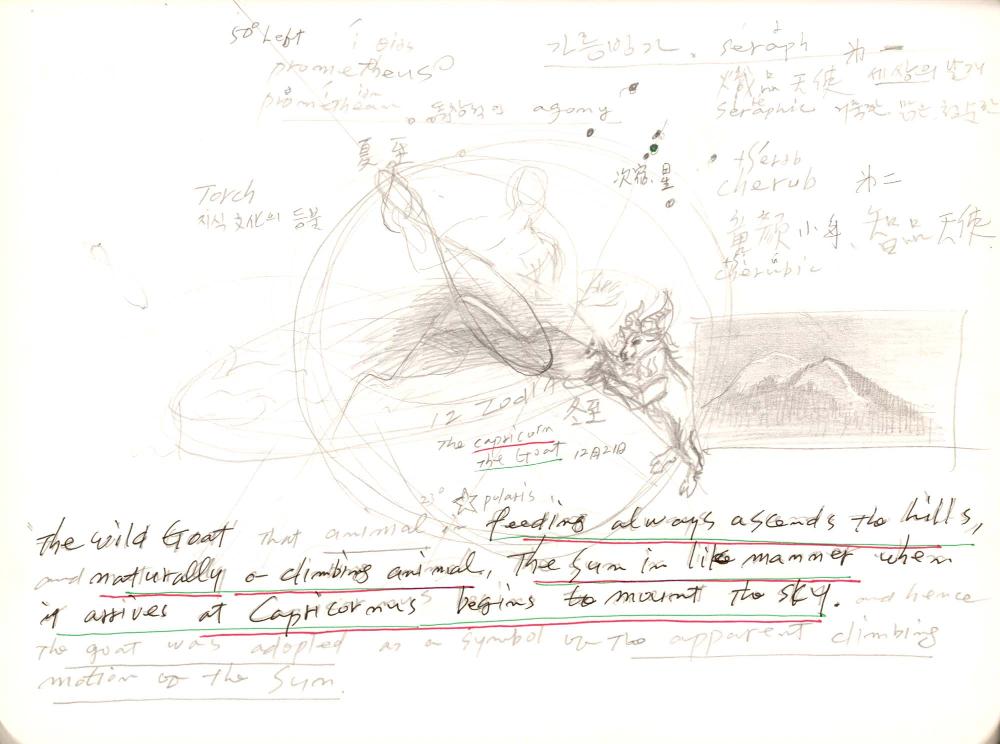 50° Left
prometheus
promethean agony
seraph 为一
天使 세상의 날개
seraphic
夏至
次宿星
cherub 为二
Torch
지식 文化의 등불
童颜 小年、智品天使
cherubic
12 Zodia
冬至
The capricorn
The Goat 12月21日
23° polaris
the wild Goat that animal in feeding always ascends the hills,
and naturally a climbing animal, The Sun in like manner when
it arrives at Capricornus begins to mount the sky. and hence
The goat was adopted as a symbol of the apparent climbing
motion of the Sun.